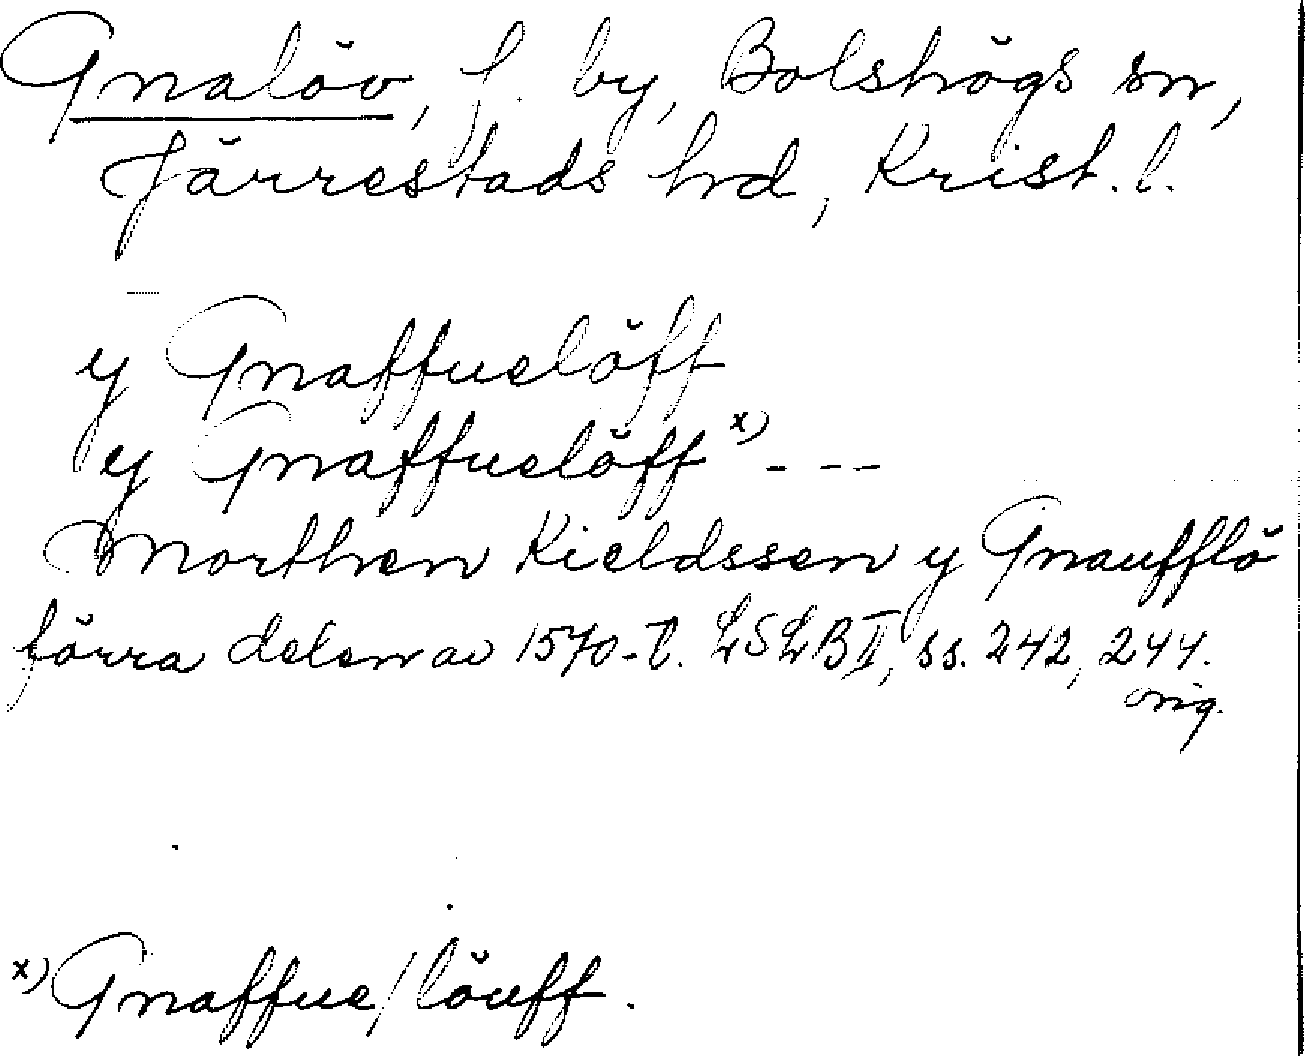 Gnalöv, f. by, Bolshögs sn,
Järrestads hrd, Krist. l.
y Gnaffuelöff
y Gnaffuelöff x) - - -
Morthen Kieldssen y Gnaufflö
förra delen av 1570-t. LSLB II, ss. 242, 244.
orig.
x) Gnaffue/löuff.